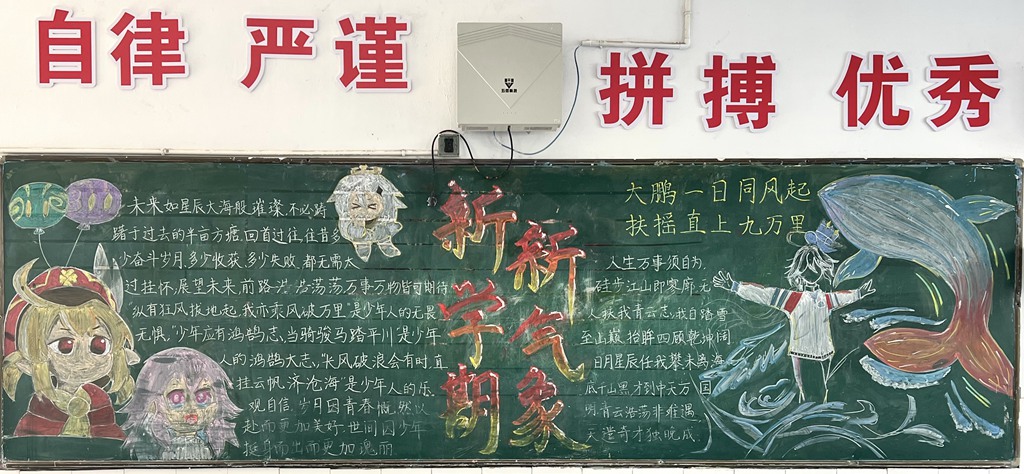 自律 严谨
拼搏 优秀
未来如星辰大海般璀璨,不必踌
躇于过去的半亩方塘,回首过往,往昔多
少奋斗岁月,多少收获,多少失败,都无需太
过挂怀,展望未来,前路浩浩荡荡万事万物皆可期待
纵有狂风拔地起,我亦乘风破万里是少年人的无畏
无惧,“少年应有鸿鹄志,当骑骏马踏平川”是少年
人的鸿鹄大志,“长风破浪会有时,直
挂云帆济沧海”是少年人的乐
观自信,岁月因青春慨然以
赴而更加美好,世间因少年
挺身而出而更加瑰丽
新学期
新气象
大鹏一日同风起
扶摇直上九万里
人生万事须自为,
硅步江山即寥廓,无
人扶我青云志,我自踏雪
至山巅,抬眸四顾乾坤阔
日月星辰任我攀,未离海
底千山黑,才到中天万国
明,青云浩荡非难遇,
天造奇才独晚成.